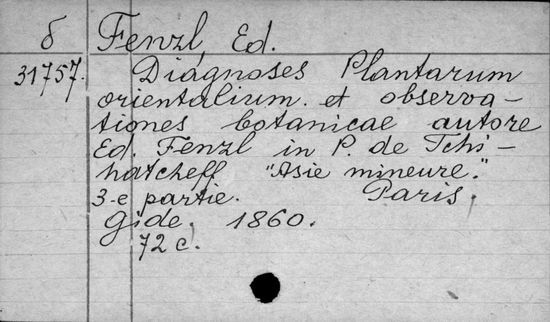 б Fenzl, Ed.
31757. Diagnoses Plantarum
orientalium. et observa-
tiones botanicae autore
Ed. Fenzl in P. de Tchi-
hatcheff "Asie mineure."
3-e partie. Paris.
Gide. 1860.
72 c.